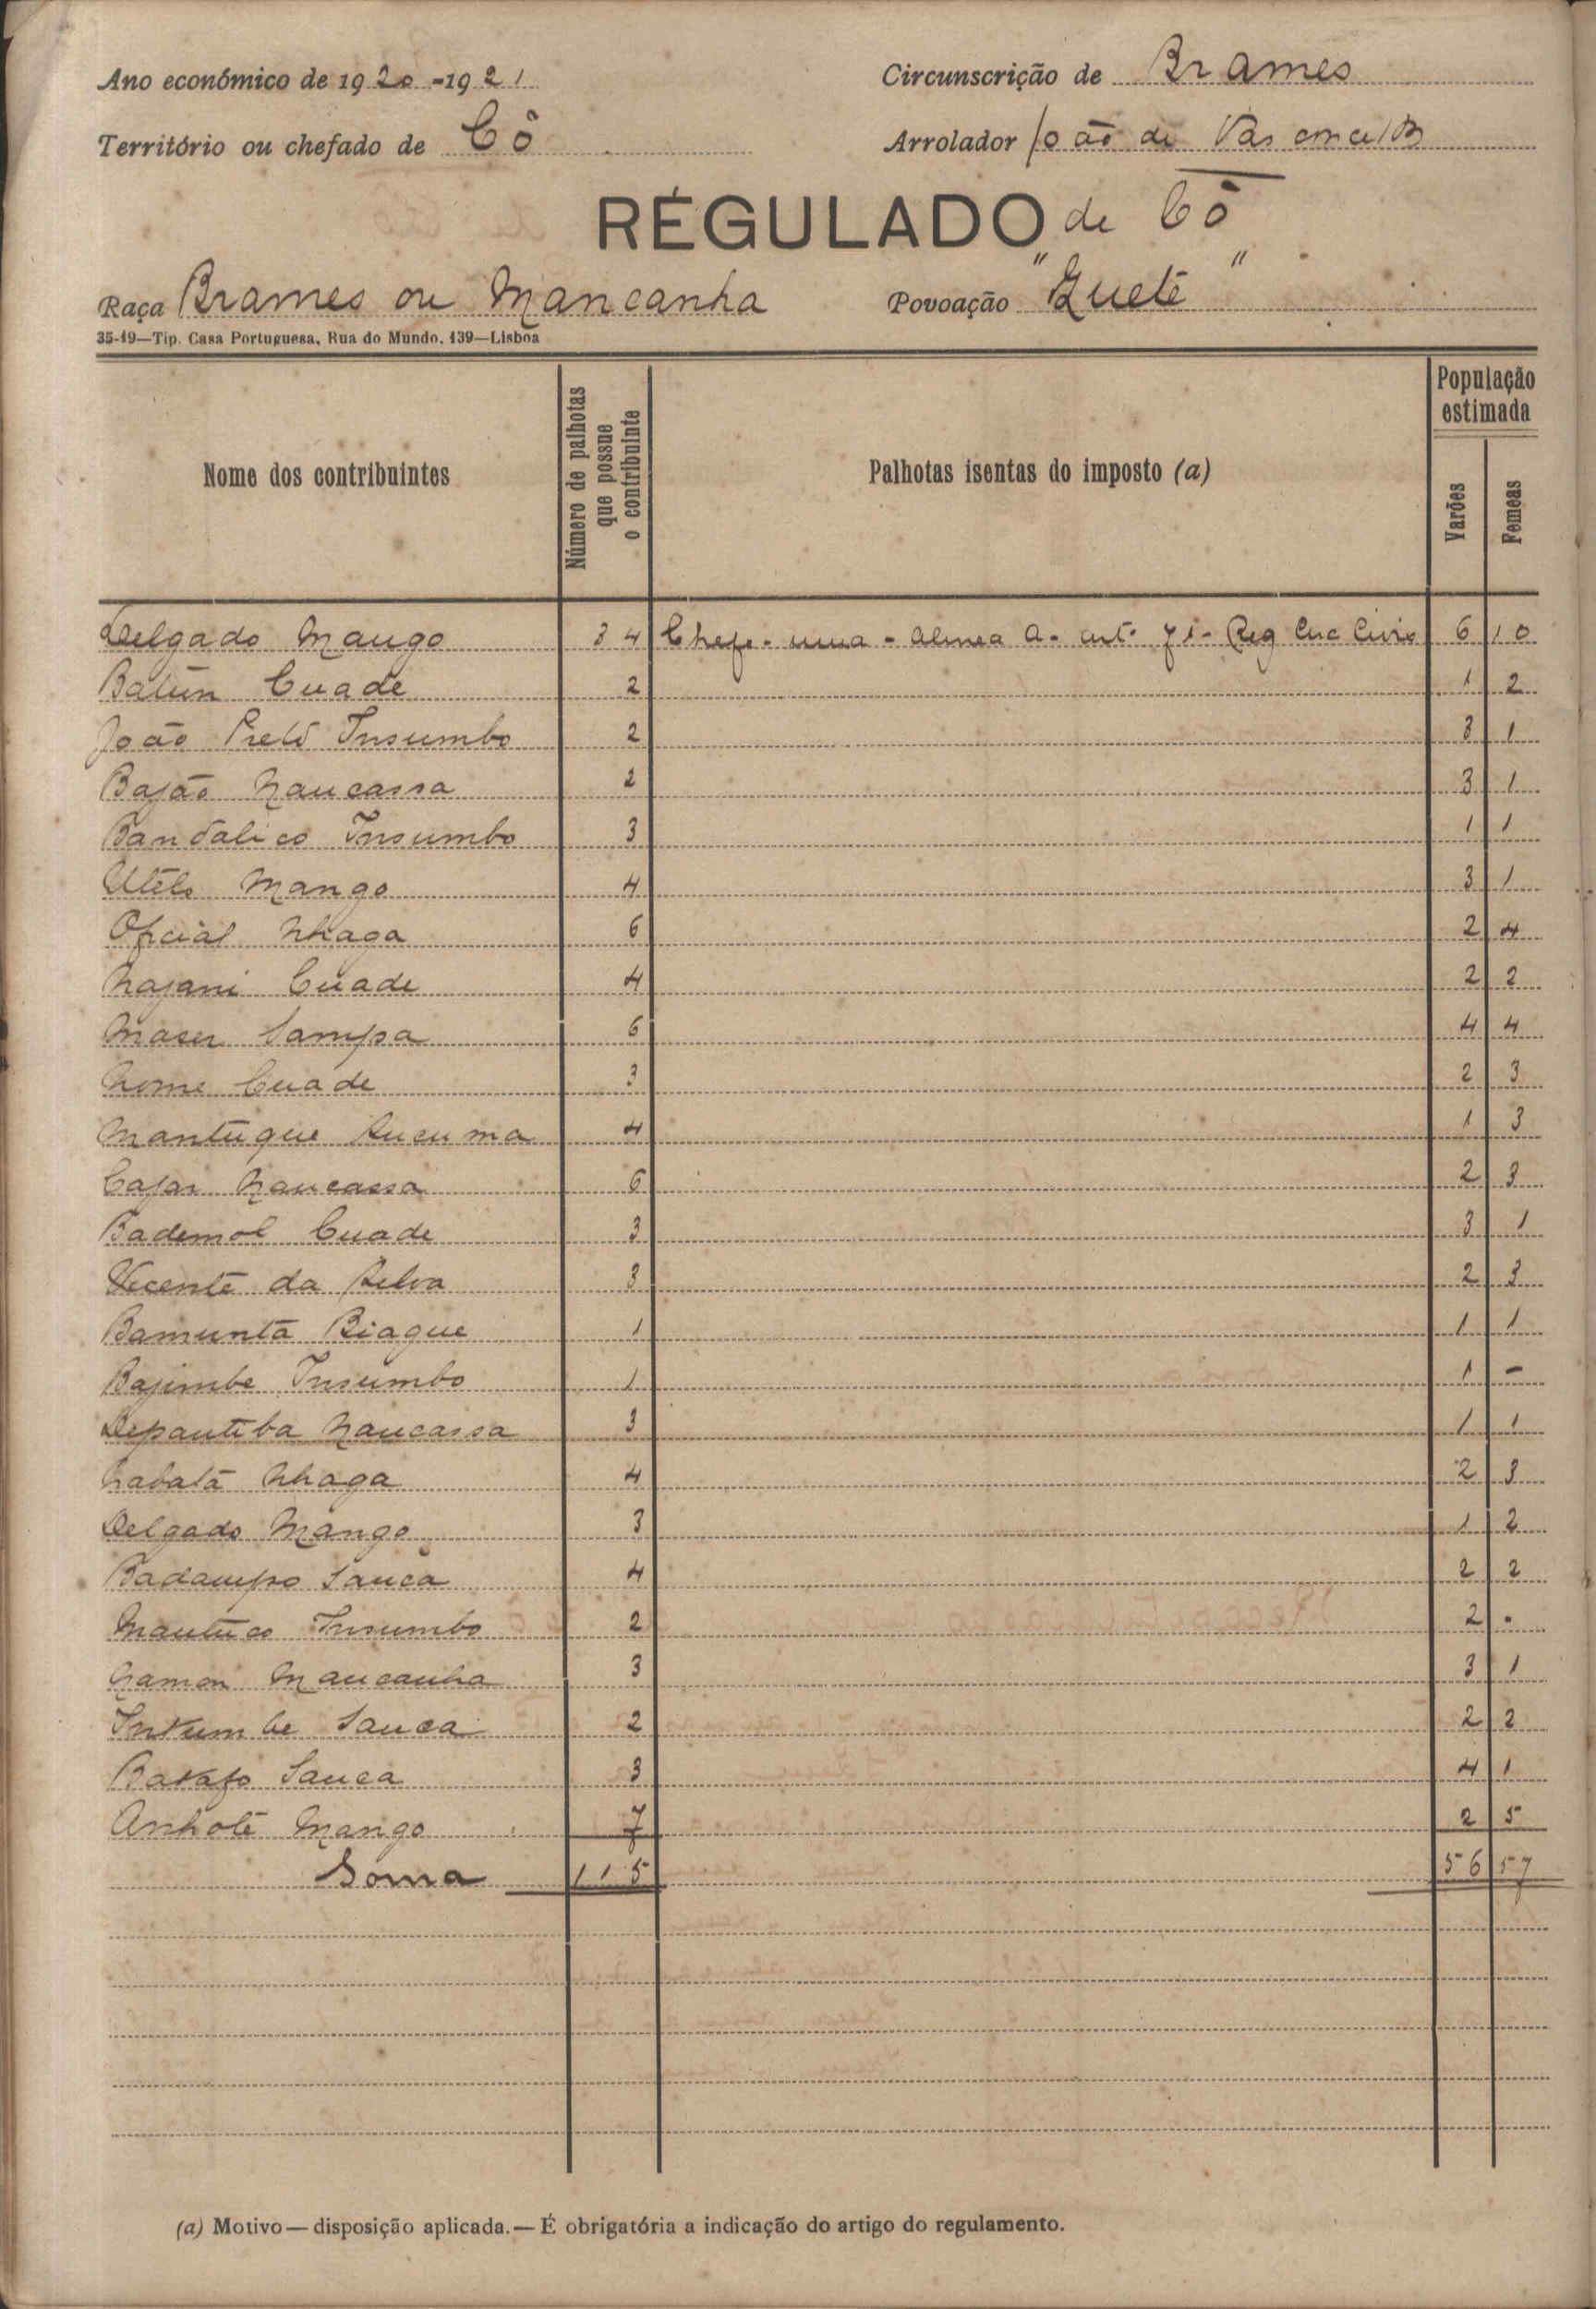 Ano económico de 1920-1921
Circunscrição de Brames
Território ou chefado de Cô
Arrolador João de Vasconcelos
RÉGULADO de Cô
Raça Brames ou Mancanha
Povoação "Quetê"
35-19—Tip. Casa Portuguesa, Rua do Mundo, 139—Lisboa
Nome dos contribuintes
Número de palhotas que possue o contribuinte
Palhotas isentas do imposto (a)
População estimada
Varões
Femeas
Delgado Mango 34 Chefe - uma - alinea a - art. 71 - Reg Circ Civis 6 10
Batún Cuade 2 1 2
João Preto Insumbo 2 3 1
Bajão Naucassa 2 3 1
Bandalico Insumbo 3 1 1
Utélo Mango 4 3 1
Oficial Nhaga 6 2 4
Najani Cuade 4 2 2
Maser Sampa 6 4 4
Nome Cuade 3 2 3
Mantuque Aucuma 4 1 3
Cajar Naucassa 6 2 3
Bademol Cuade 3 3 1
Vicente da Silva 3 2 3
Bamuntã Biague 1 1 1
Bajimbe Insumbo 1 1 -
Depautiba Naucassa 3 1 1
Nabatã Nhaga 4 2 3
Delgado Mango 3 1 2
Badampo Sauca 4 2 2
Mantuco Insumbo 2 2 .
Namon Mancanha 3 3 1
Intumbe Sauca 2 2 2
Batafo Sauca 3 4 1
Anhotê Mango 7 2 5
Soma 115 56 57
(a) Motivo — disposição aplicada. — É obrigatória a indicação do artigo do regulamento.